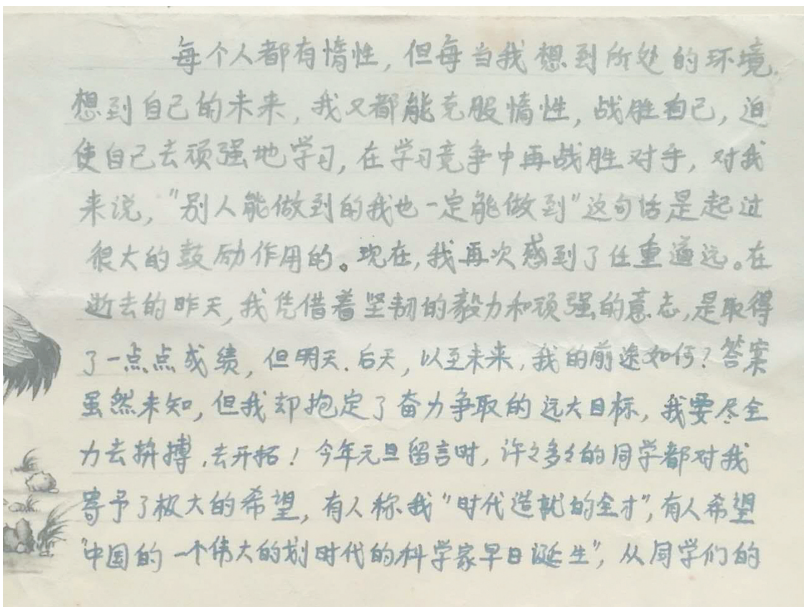 每个人都有惰性，但每当我想到所处的环境，
想到自己的未来，我又都能克服惰性，战胜自己，迫
使自己去顽强地学习，在学习竞争中再战胜对手，对我
来说，"别人能做到的我也一定能做到"这句话是起过
很大的鼓励作用的。现在，我再次感到了任重道远。在
逝去的昨天，我凭借着坚韧的毅力和顽强的意志，是取得
了一点点成绩，但明天、后天，以至未来，我的前途如何？答案
虽然未知，但我却抱定了奋力争取的远大目标，我要尽全
力去拚搏，去开拓！今年元旦留言时，许许多多的同学都对我
寄予了极大的希望，有人称我"时代造就的全才"，有人希望
"中国的一个伟大的划时代的科学家早日诞生"，从同学们的